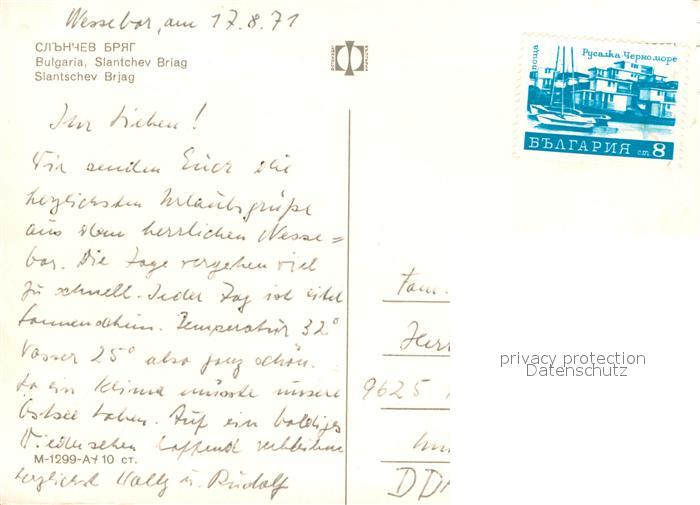 Nessebar, am 17.8.71
СЛЪНЧЕВ БРЯГ
Bulgaria, Slantchev Briag
Slantschev Brjag
поща
Русалка Черноморе
БЪЛГАРИЯ ст 8
Ihr Lieben!
Wir senden Euch die
herzlichsten Urlaubsgrüße
aus dem herrlichen Nesse=
bar. Die Tage vergehen viel
zu schnell. Jeder Tag ist eitel
Sonnenschein. Temperatur 32°
Wasser 25° also ganz schön.
So ein Klima müsste unsere
Ostsee haben. Auf ein baldiges
Wiedersehen hoffend verbleiben
herzlichst Wally u. Rudolf
M-1299-A/10 ст.
Fam.
Herr
9625
DD
privacy protection
Datenschutz